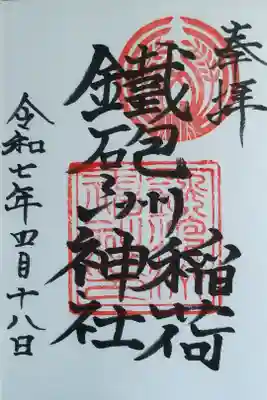 奉拝
鐵砲洲稲荷
神社
令和七年四月十八日